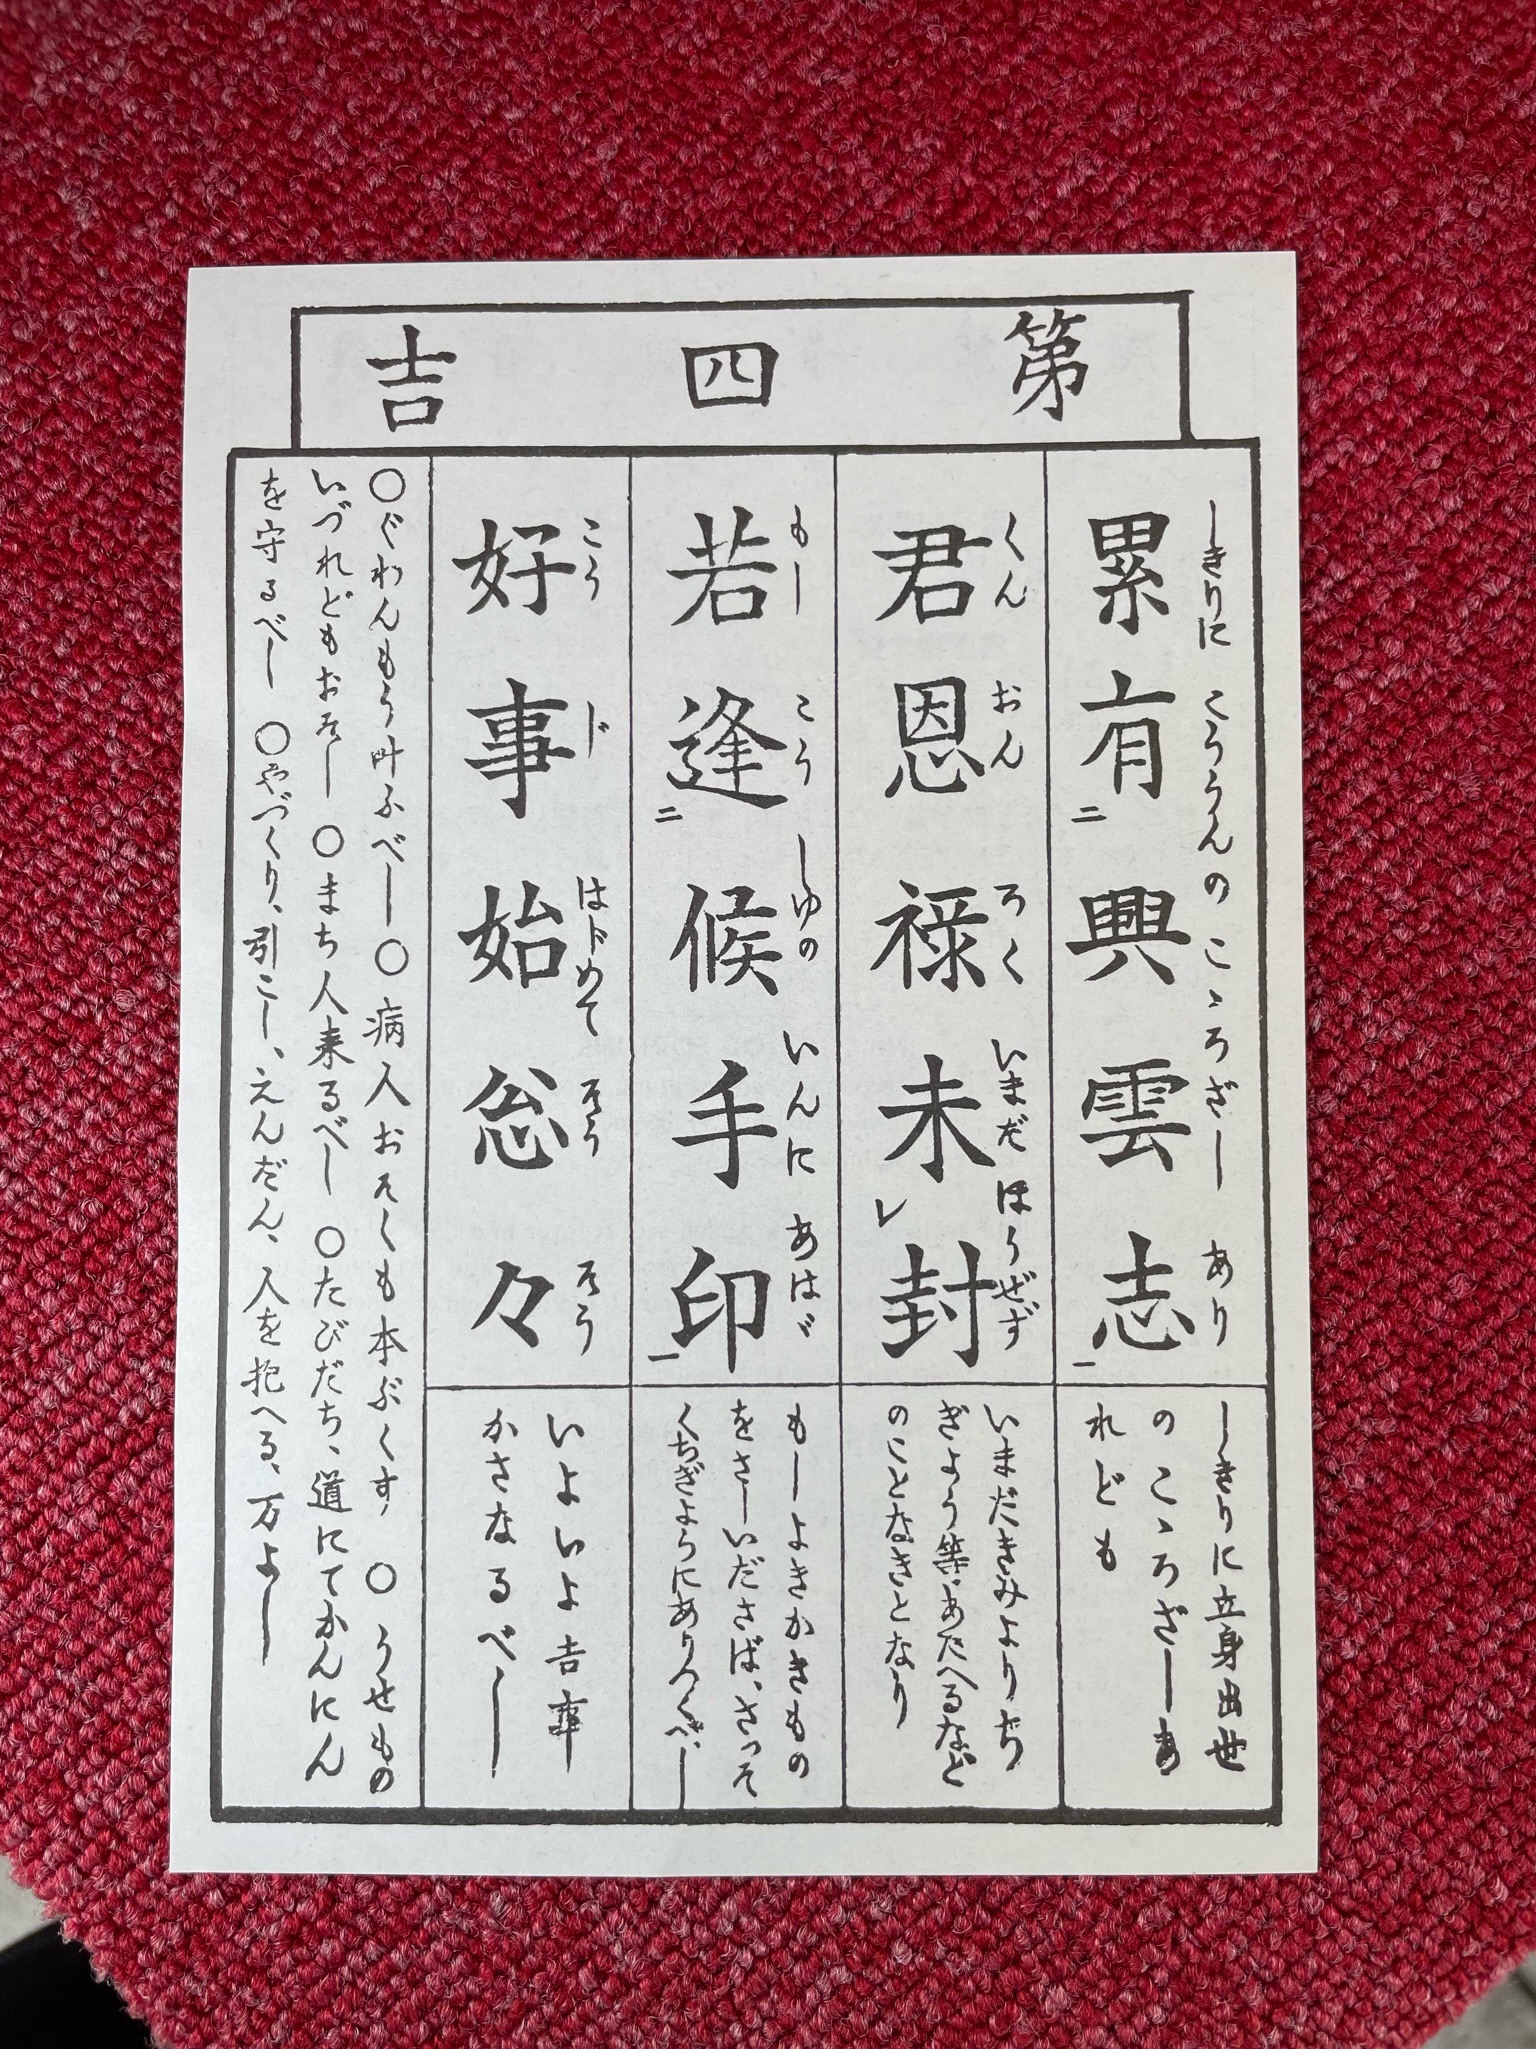 第四吉
累有興雲志
しきりに こううんの こゝろざし あり
二 一
しきりに立身出世
のこゝろざしあ
れども
君恩禄未封
くん おん ろく いまだ ほうぜず
レ
いまだきみよりぢ
ぎよう等、あたへるなど
のことなきとなり
若逢候手印
もし こう しゆの いんに あはゞ
二 一
もしよきかきもの
をさしいださば、さつそ
くちぎようにありつくべし
好事始忩々
こう じ はじめて そう そう
いよいよ吉事
かさなるべし
○ぐわんもう叶ふべし○病人おそくも本ぶくす ○うせもの
いづれどもおそし ○まち人来るべし ○たびだち、道にてかんにん
を守るべし ○やづくり、引こし、えんだん、人を抱へる、万よし